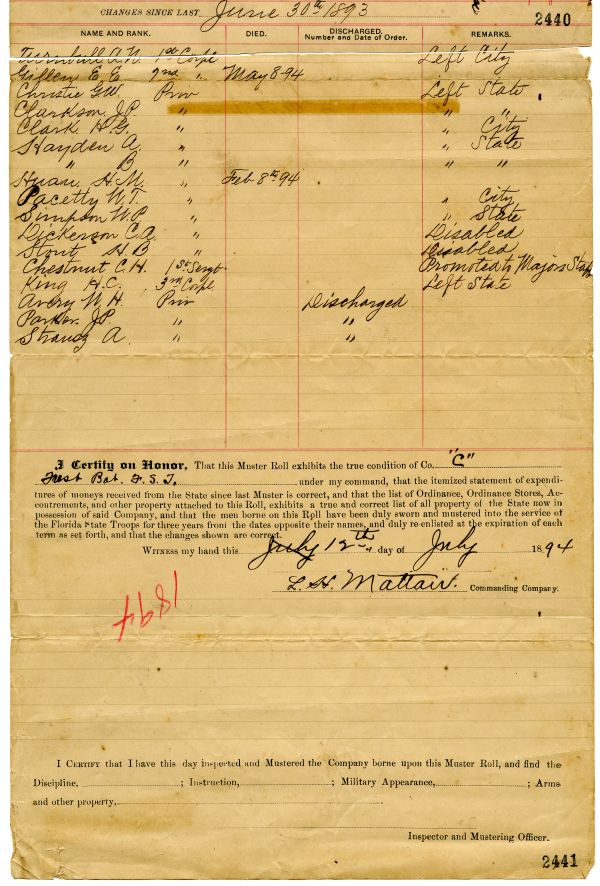 CHANGES SINCE LAST June 30th 1893
2440
NAME AND RANK. DIED. DISCHARGED. REMARKS.
Number and Date of Order.
Turnbull A.N. 1st Corpl Left City
Gillen E E 2nd " May 8-94
Christie G.W. Priv Left State
Clarkson J.P. " " "
Clark H.G. " " City
Hayden A. " " State
" B " " "
Huau H.M. " Feb 8th 94
Pacetty W.T. " " City
Simpson W.P. " " State
Dickerson C.A. " Disabled
Stout H B " Disabled
Chestnut C.H. 1st Sergt Promoted to Majors Staff
King H.C. 3rd Corpl Left State
Avery W.H. Priv Discharged
Parker J.P. " "
Strauz A. " "
I Certify on Honor, That this Muster Roll exhibits the true condition of Co. "C"
First Bat. F.S.T. under my command, that the itemized statement of expendi-
tures of moneys received from the State since last Muster is correct, and that the list of Ordinance, Ordinance Stores, Ac-
coutrements, and other property attached to this Roll, exhibits a true and correct list of all property of the State now in
possession of said Company, and that the men borne on this Roll have been duly sworn and mustered into the service of
the Florida State Troops for three years from the dates opposite their names, and duly re-enlisted at the expiration of each
term as set forth, and that the changes shown are correct.
WITNESS my hand this July 12th day of July 1894
L. H. Mattair. Commanding Company.
1894
I CERTIFY that I have this day inspected and Mustered the Company borne upon this Muster Roll, and find the
Discipline, ; Instruction, ; Military Appearance, ; Arms
and other property,
Inspector and Mustering Officer.
2441